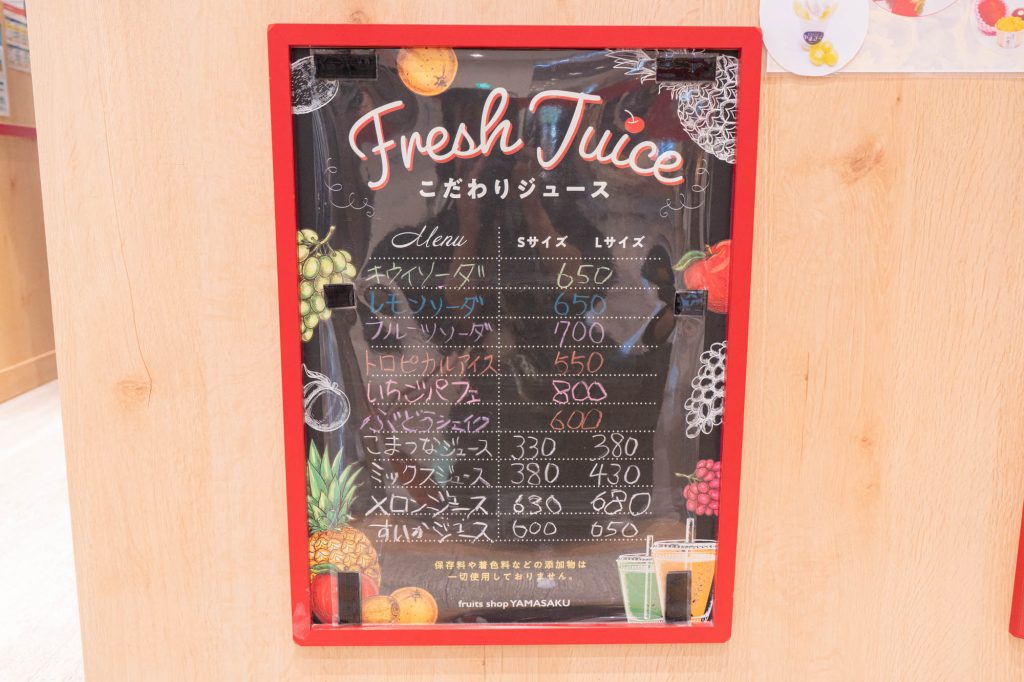 Fresh Juice
こだわりジュース
Menu Sサイズ Lサイズ
キウイソーダ 650
レモンソーダ 650
フルーツソーダ 700
トロピカルアイス 550
いちごパフェ 800
ぶどうシェイク 600
こまつなジュース 330 380
ミックスジュース 380 430
メロンジュース 630 680
すいかジュース 600 650
保存料や着色料などの添加物は
一切使用しておりません。
fruits shop YAMASAKU